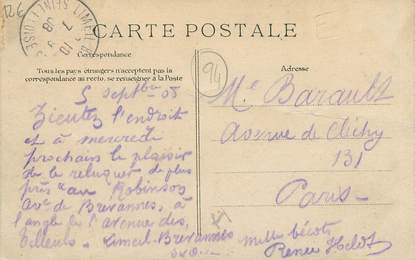 126
CARTE POSTALE
Correspondance
Tous les pays étrangers n'acceptent pas la
correspondance au recto. se renseigner à la Poste
Adresse
94
5 Septbre 08
Zieutez l'endroit
et à mercredi
prochain le plaisir
de le reluquer de plus
près au Robinson
Ave de Brevannes, à
l'angle de l'avenue des
Tilleuls. Limeil-Brevannes
Mille bécots
Renée
Me Barault
Avenue de Clichy
131
Paris
LIMEIL